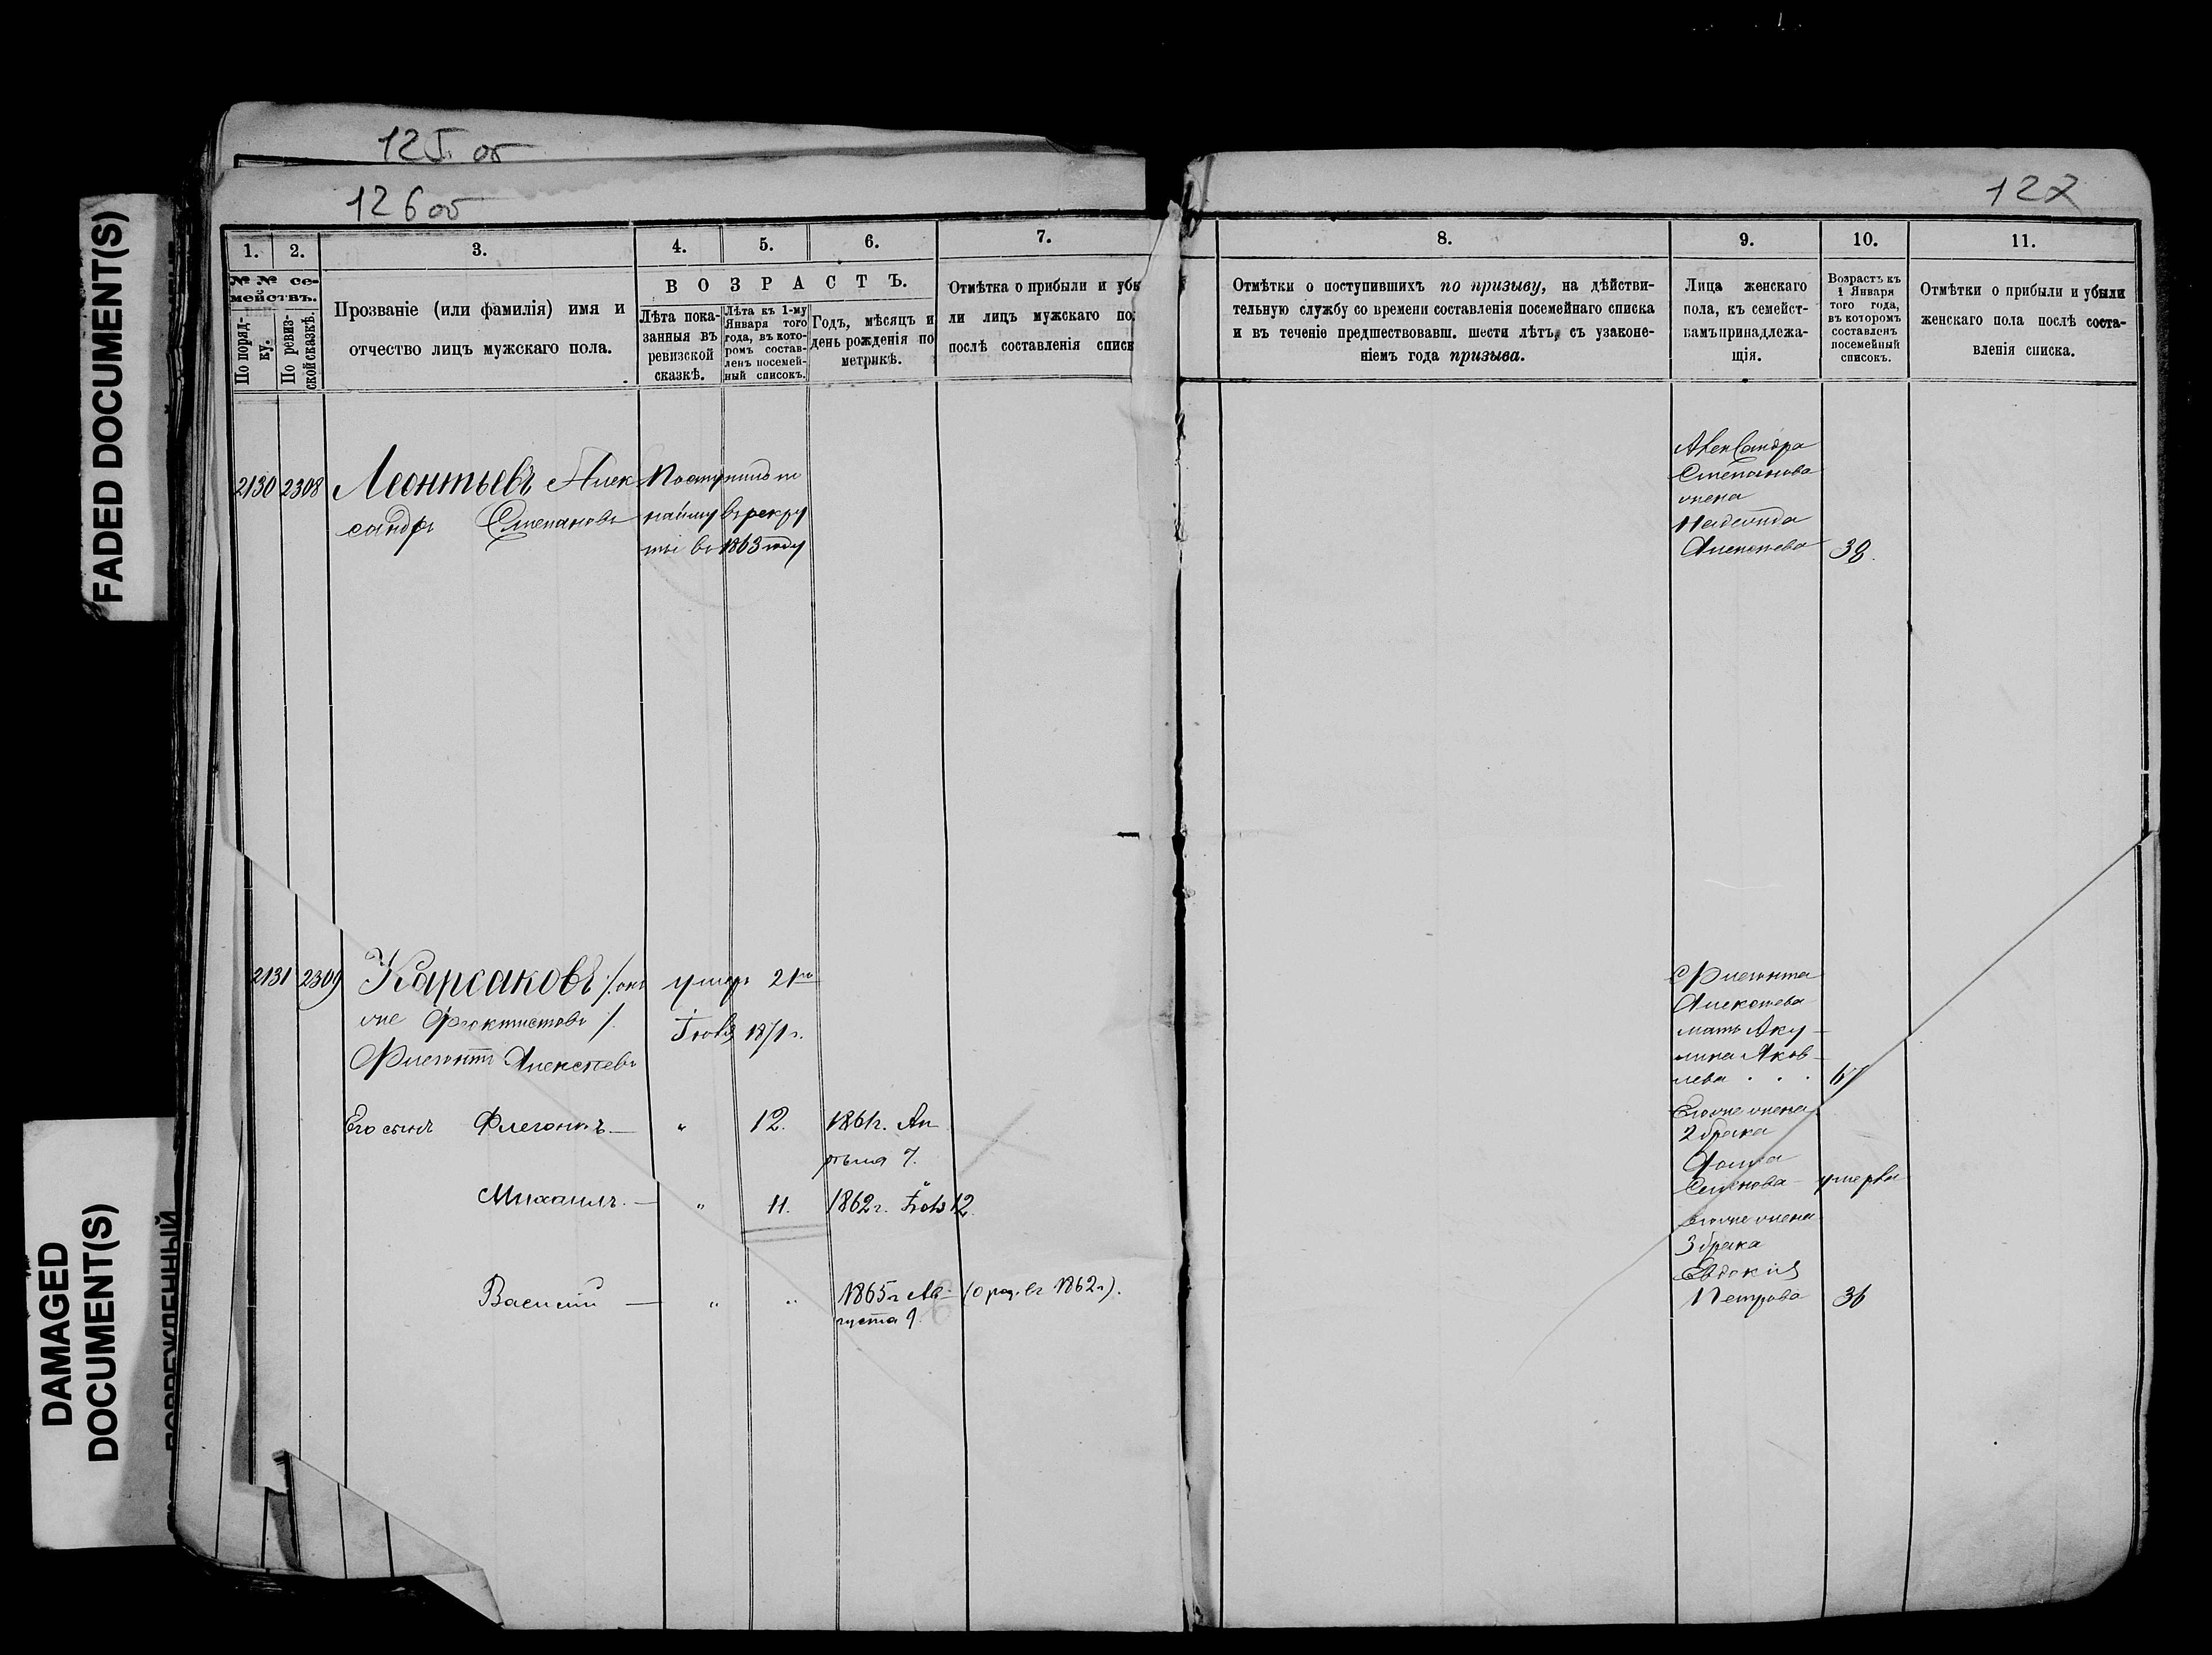 125 об
126 об
127
FADED DOCUMENT(S)
DAMAGED
DOCUMENT(S)
1. 2. 3. 4. 5. 6. 7.
№ № се-
мействъ.
По поряд-
ку.
По ревиз-
ской сказкѣ.
Прозваніе (или фамилія) имя и
отчество лицъ мужскаго пола.
ВОЗРАСТЪ.
Лѣта пока-
занныя въ
ревизской
сказкѣ.
Лѣта къ 1-му
Января того
года, въ кото-
ромъ состав-
ленъ посемей-
ный списокъ.
Годъ, мѣсяцъ и
день рожденія по
метрикѣ.
Отмѣтка о прибыли и убы
ли лицъ мужскаго по
послѣ составленія списк
2130 2308 Леонтьевъ Алек
сандръ Степановъ
Поступилъ по
найму въ рекру
ты въ 1863 году
2131 2309 Карсаковъ /: онъ
же Феоктистовъ :/
Флегонтъ Алексѣевъ
умеръ 21го
Іюля 1871 г.
Его сынъ Флегонтъ — " 12. 1861 г. Ап
рѣля 7.
Михаилъ. — " 11. 1862 г. 12
Василій — " " 1865 г Ав-
густа 9.
(о род. въ 1862 г).
8. 9. 10. 11.
Отмѣтки о поступившихъ по призыву, на дѣйстви-
тельную службу со времени составленія посемейнаго списка
и въ теченіе предшествовавш. шести лѣтъ, съ узаконе-
ніемъ года призыва.
Лица женскаго
пола, къ семейст-
вамъ принадлежа-
щія.
Возрастъ къ
1 Января
того года,
въ которомъ
составленъ
посемейный
списокъ.
Отмѣтки о прибыли и убыли
женскаго пола послѣ соста-
вленія списка.
Александра
Степанова
жена
Надежда
Алексѣева 38.
Флегонта
Алексѣева
мать Аку-
лина Яков-
лева . . . 67
Его же жена
2 брака
Семенова — умерла
Его же жена
3 брака
Евдокія
Петрова 36